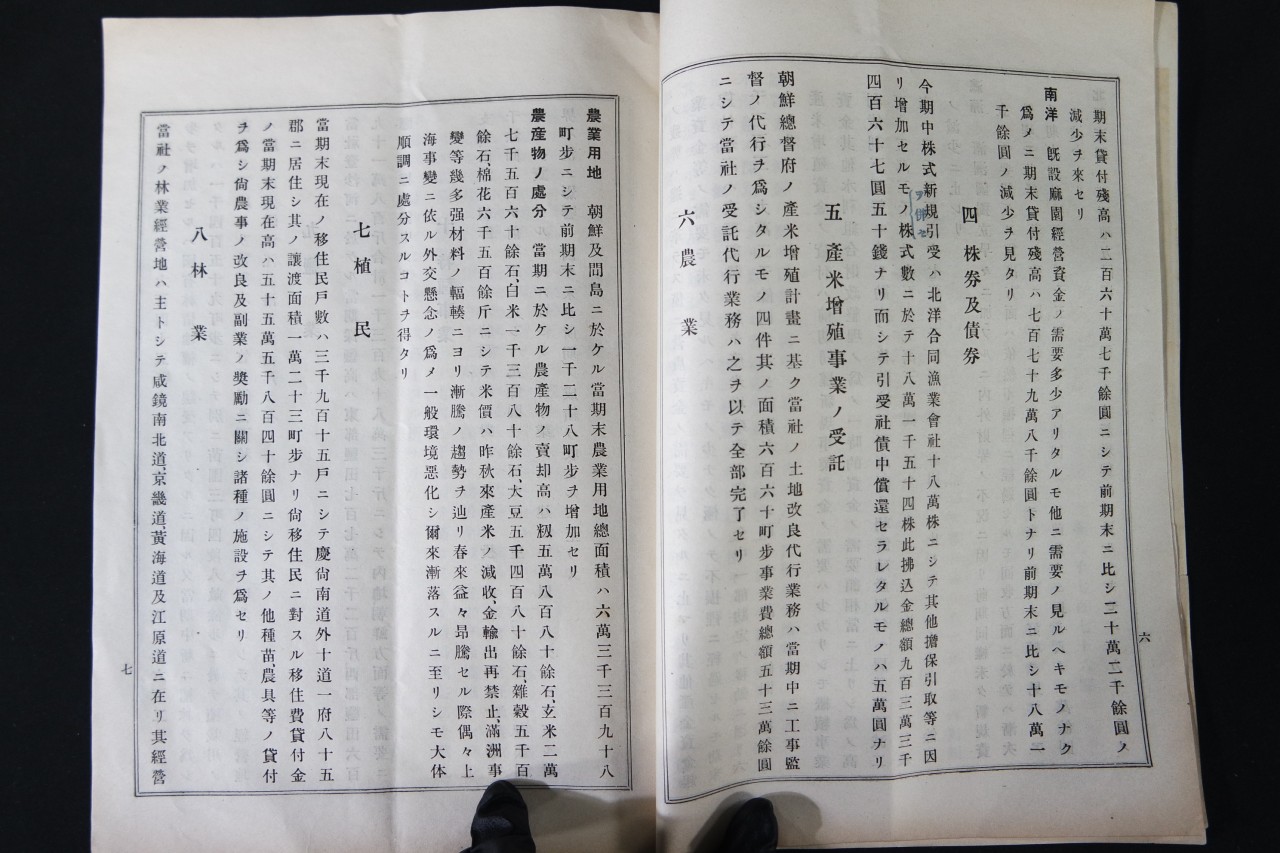 期末貸付殘高ハ二百六十萬七千餘圓ニシテ前期末ニ比シ二十萬二千餘圓ノ
減少ヲ來セリ
南洋 既設麻園經營資金ノ需要多少アリタルモ他ニ需要ノ見ルヘキモノナク
爲メニ期末貸付殘高ハ七百七十九萬八千餘圓トナリ前期末ニ比シ十八萬二
千餘圓ノ減少ヲ見タリ
四 株券及債券
今期中株式新規引受ハ北洋合同漁業會社十八萬株ニシテ其他擔保引取等ニ因
リ增加セルモノヲ併セ株式數ニ於テ十八萬一千五十四株此拂込金總額九百三萬三千
四百六十七圓五十錢ナリ而シテ引受社債中償還セラレタルモノハ五萬圓ナリ
五 產米增殖事業ノ受託
朝鮮總督府ノ產米增殖計畫ニ基ク當社ノ土地改良代行業務ハ當期中ニ工事監
督ノ代行ヲ爲シタルモノ四件其ノ面積六百六十町步事業費總額五十三萬餘圓
ニシテ當社ノ受託代行業務ハ之ヲ以テ全部完了セリ
六 農業
六
農業用地 朝鮮及間島ニ於ケル當期末農業用地總面積ハ六萬三千三百九十八
町步ニシテ前期末ニ比シ一千二十八町步ヲ增加セリ
農産物ノ處分 當期ニ於ケル農產物ノ賣却高ハ籾五萬八百八十餘石、玄米二萬
七千五百六十餘石、白米一千三百八十餘石、大豆五千四百八十餘石、雜穀五千百
餘石、棉花六千五百餘斤ニシテ米價ハ昨秋來產米ノ減收、金輸出再禁止、滿洲事
變等幾多强材料ノ輻輳ニヨリ漸騰ノ趨勢ヲ辿リ春來益々昂騰セル際偶々上
海事變ニ依ル外交懸念ノ爲メ一般環境惡化シ爾來漸落スルニ至リシモ大体
順調ニ處分スルコトヲ得タリ
七 植民
當期末現在ノ移住民戶數ハ三千九百十五戶ニシテ慶尙南道外十道一府八十五
郡ニ居住シ其ノ讓渡面積一萬二十三町步ナリ尙移住民ニ對スル移住費貸付金
ノ當期末現在高ハ五十五萬五千八百四十餘圓ニシテ其ノ他種苗、農具等ノ貸付
ヲ爲シ尙農事ノ改良及副業ノ奬勵ニ關シ諸種ノ施設ヲ爲セリ
八 林業
當社ノ林業經營地ハ主トシテ咸鏡南北道、京畿道、黃海道及江原道ニ在リ其經營
七